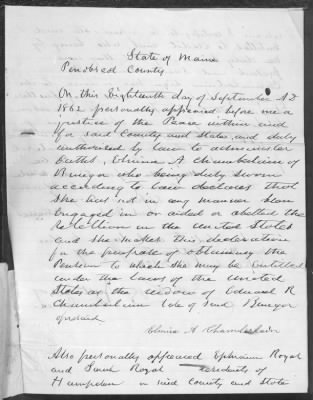 State of Maine
Penobscot County
On this Eighteenth day of September A.D
1862 personally appeared before me a
justice of the Peace within and
for said County and State, and duly
authorized by law to administer
oaths, A Chamberlain of
Bangor who being duly sworn
according to law declares that
She has not in any manner been
engaged in or aided or abetted the
rebellion in the United States
and she makes this declaration
for the purpose of obtaining the
Pension to which she may be entitled
under the laws of the United
States as the widow of Edward R
Chamberlain late of said Bangor
deceased
A. Chamberlain
Also personally appeared Ephraim Royal
and Sarah Royal residents of
Hampden in said County and State